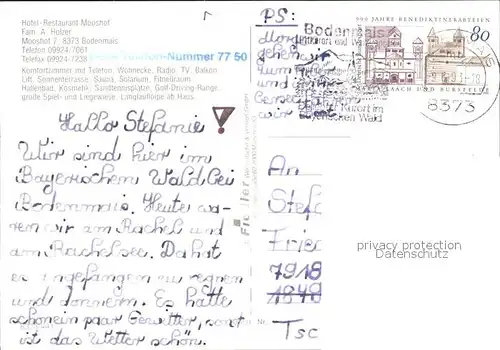 Hotel-Restaurant Mooshof
Fam. A. Holzer
Mooshof 7, 8373 Bodenmais
Telefon 09924/7061
Telefax 09924/7238
Nummer 77 50
Komfortzimmer mit Telefon, Wohnecke, Radio, TV, Balkon
Lift, Sonnenterrasse, Sauna, Solarium, Fitneßraum
Hallenbad, Kosmetik, Sandtennisplätze, Golf-Driving-Range
große Spiel- und Liegewiese, Langlaufloipe ab Haus.
Hallo Stefanie
Wir sind hier im
Bayerischem Wald bei
Bodenmais. Heute wa-
ren wir am Rachel und
am Rachelsee. Da hat
es angefangen zu regnen
und donnern. Es hatte
schon ein paar Gewitter, sonst
ist das Wetter schön.
PS:
Morgen
gehen wir
zum
und
wir
Bodenmais
Kurort im
Bayerischen Wald
900 JAHRE BENEDIKTINERABTEIEN
80
MARIA LAACH UND BURSFELDE
8373
An
Stef
Frie
7918
1848
Tsc
privacy protection
Datenschutz